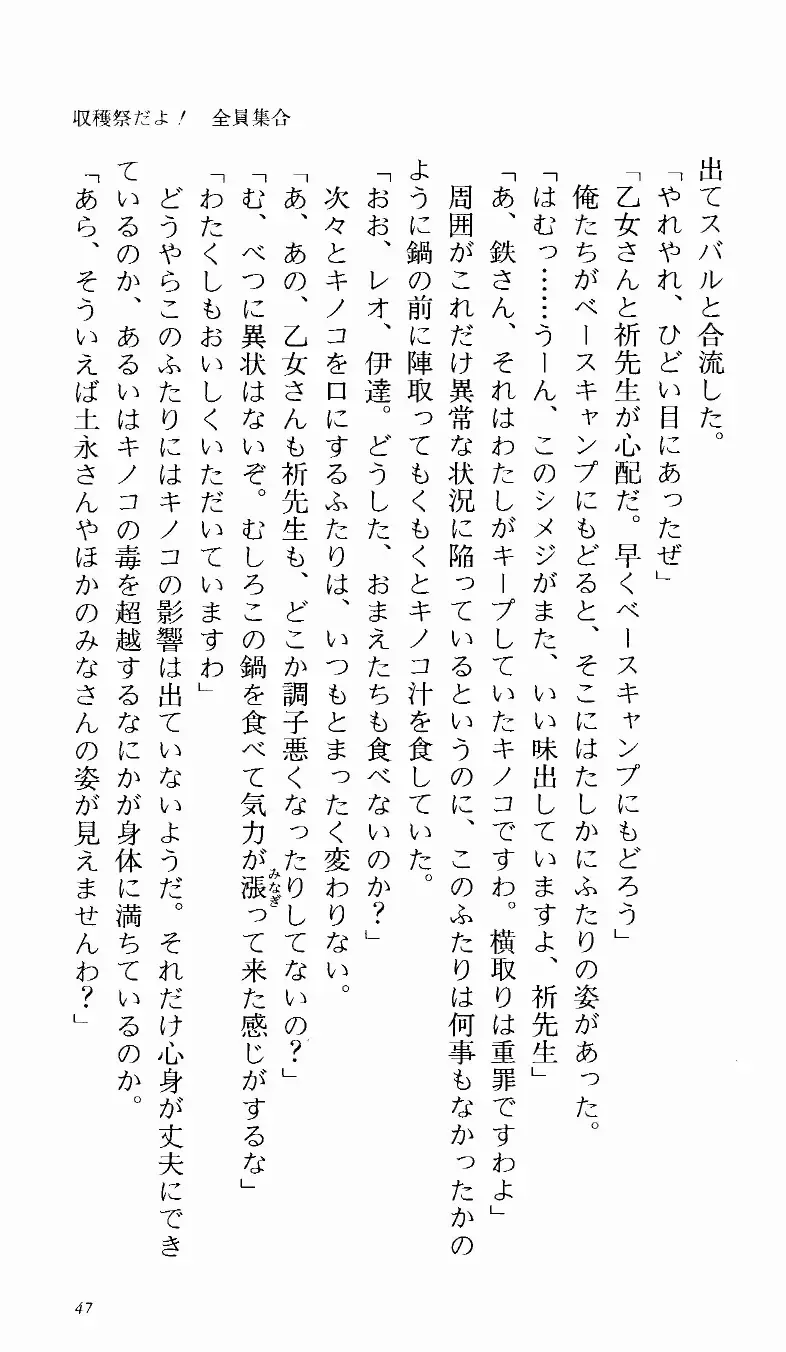 収穫祭だよ！　全員集合
出てスバルと合流した。
「やれやれ、ひどい目にあったぜ」
「乙女さんと祈先生が心配だ。早くベースキャンプにもどろう」
俺たちがベースキャンプにもどると、そこにはたしかにふたりの姿があった。
「はむっ……うーん、このシメジがまた、いい味出していますよ、祈先生」
「あ、鉄さん、それはわたしがキープしていたキノコですわ。横取りは重罪ですわよ」
周囲がこれだけ異常な状況に陥っているというのに、このふたりは何事もなかったかの
ように鍋の前に陣取ってもくもくとキノコ汁を食していた。
「おお、レオ、伊達。どうした、おまえたちも食べないのか？」
次々とキノコを口にするふたりは、いつもとまったく変わりない。
「あ、あの、乙女さんも祈先生も、どこか調子悪くなったりしてないの？」
「む、べつに異状はないぞ。むしろこの鍋を食べて気力が漲って来た感じがするな」
みなぎ
「わたくしもおいしくいただいていますわ」
どうやらこのふたりにはキノコの影響は出ていないようだ。それだけ心身が丈夫にでき
ているのか、あるいはキノコの毒を超越するなにかが身体に満ちているのか。
「あら、そういえば土永さんやほかのみなさんの姿が見えませんわ？」
47